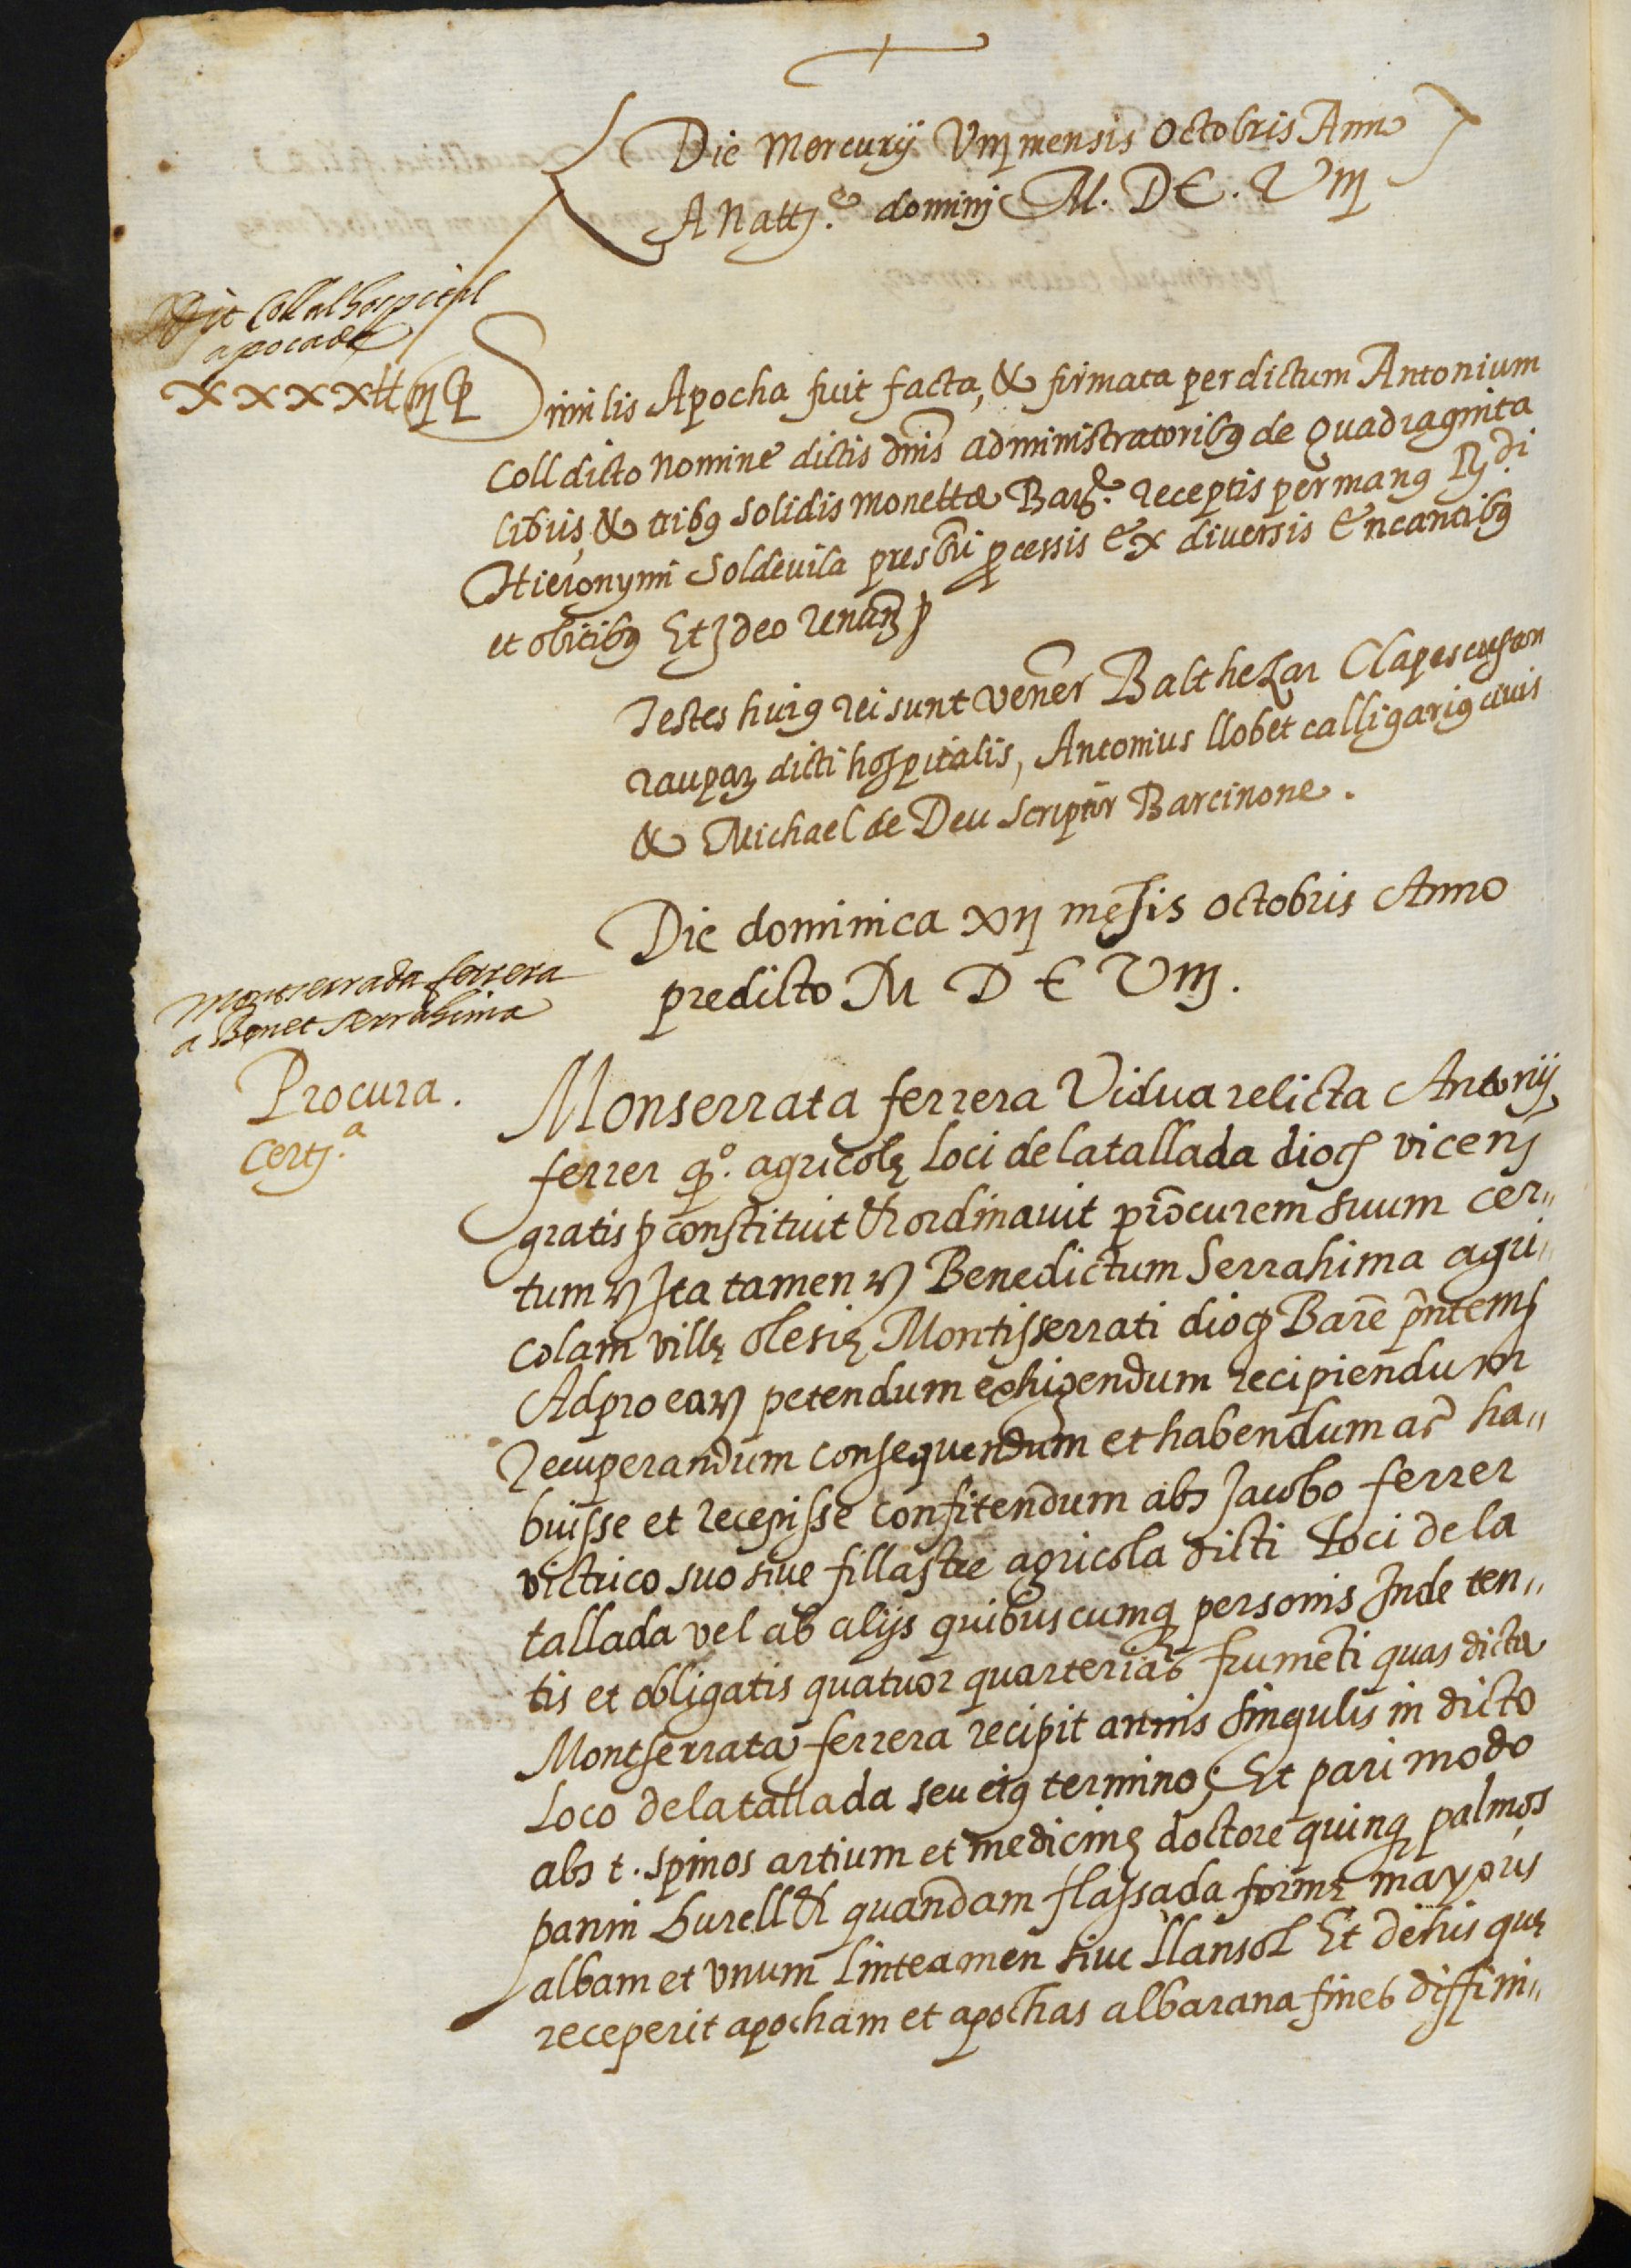 Die Mercurij Viij mensis Octobris Anno
A Natt.e domini M. D C. Viij
Dit Coll al hospital
apoca de
XXXX ll iij ß
Similis Apocha fuit facta, & firmata per dictum Antonium
Coll dicto nomine dictis dnis administratoribus de Quadraginta
libris, & tribus solidis monettæ Bar.e receptis per manus R.di
Hieronymi Soldevila presbri pcessis Ex diversis Encantibus
et obitibus Et Ideo renun
Testes huius rei sunt vener Balthezar Clapes
dicti hospitalis, Antonius llobet calligarius civis
& Michael de Deu Scriptor Barcinone.
Die dominica xij mesis octobris Anno
predicto M D C Viij.
Montserrada ferrera
a Benet serrahima
Procura.
Certj.a
Monserrata ferrera Vidua relicta Antonij
ferrer q.o agricolę Loci de la tallada diocs vicens
gratis constituit & ordinavit procurem suum cer„
tum Ita tamen Benedictum Serrahima agri„
colam villę olesię Montisserrati diocs Bare pntem
Ad pro ea petendum exhigendum recipiendum
recuperandum consequendum et habendum ac ha„
buisse et recepisse confitendum abs Jacobo ferrer
victrico suo sive fillastre agricola dicti Loci de la
tallada vel ab alijs quibuscumq personis Inde ten„
tis et obligatis quatuor quarterias frumeti quas dicta
Montserrata ferrera recipit annis singulis in dicto
Loco de la tallada seu eius termino; Et pari modo
abs t. spinos artium et medicinę doctore quinq palmos
panni burell & quandam flassada formę mayoris
albam et vnum linteamen sive llansol Et de his quę
receperit apocham et apochas albarana fines diffini„